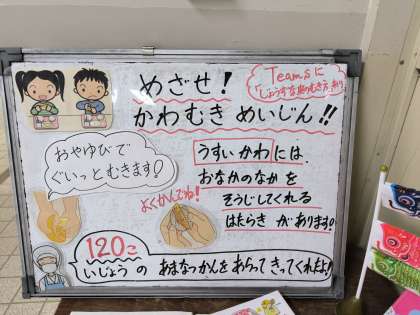 めざせ!
かわむき めいじん!!
Teamsに
「じょうずな皮のむき方」あり
おやゆびで
ぐいっとむきます!
うすいかわには、
おなかのなかを
そうじしてくれる
はたらき があります!
よくかんでね!
120こ
いじょうの あまなつかんをあらって きってくれたよ!